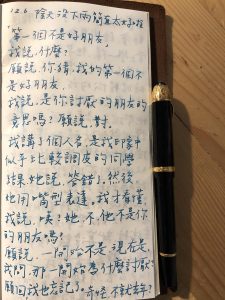 12.6. 陰天沒下雨簡直太好
「第一個不是好朋友」
我說,什麼?
願說,你猜,我的第一個不
是好朋友.
我說,是你討厭的朋友的
意思嗎?願說,對.
我講了個人名,是我印象中
似乎比較調皮的同學
結果她說,答錯了.然後
她用嘴型表達.我才看懂,
我說,唉?她不,他不是你
的朋友嗎?
願說,一開始不是,現在是.
我問,那一開始為什麼討厭
願回我也忘記了.奇怪